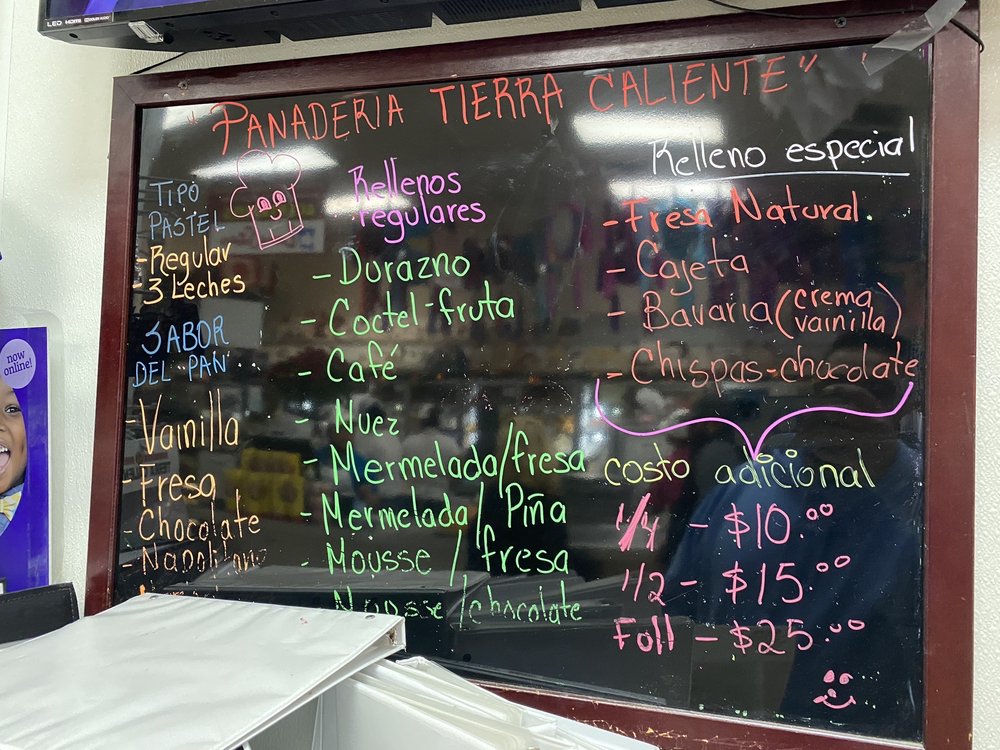 LED HDMI DOLBY AUDIO
"PANADERIA TIERRA CALIENTE"
TIPO
PASTEL
-Regular
-3 Leches
SABOR
DEL PAN
-Vainilla
-Fresa
-Chocolate
-Napolitano
Rellenos
regulares
-Durazno
-Coctel-fruta
-Café
-Nuez
-Mermelada/fresa
-Mermelada/Piña
-Mousse/fresa
-Mousse/chocolate
Relleno especial
-Fresa Natural.
-Cajeta
-Bavaria (crema
vainilla)
-Chispas-chocolate
costo adicional
1/4 - $10.00
1/2 - $15.00
Foll - $25.00
now
online!